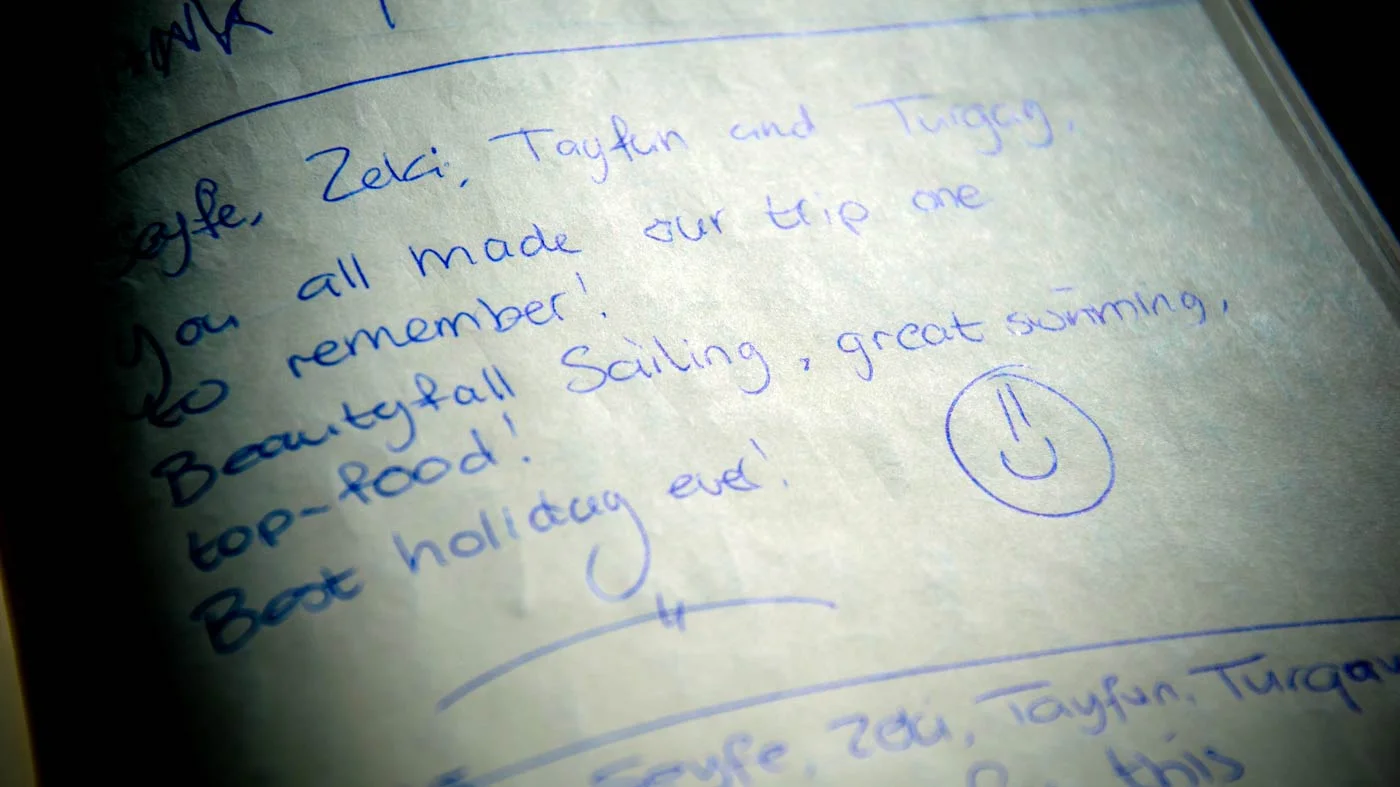 Seyfe, Zeki, Tayfun and Turgay,
you all made our trip one
to remember!
Beautyfall Sailing, great swimming,
top-food!
Best holiday ever!
Seyfe, Zeki, Tayfun, Turgay
this